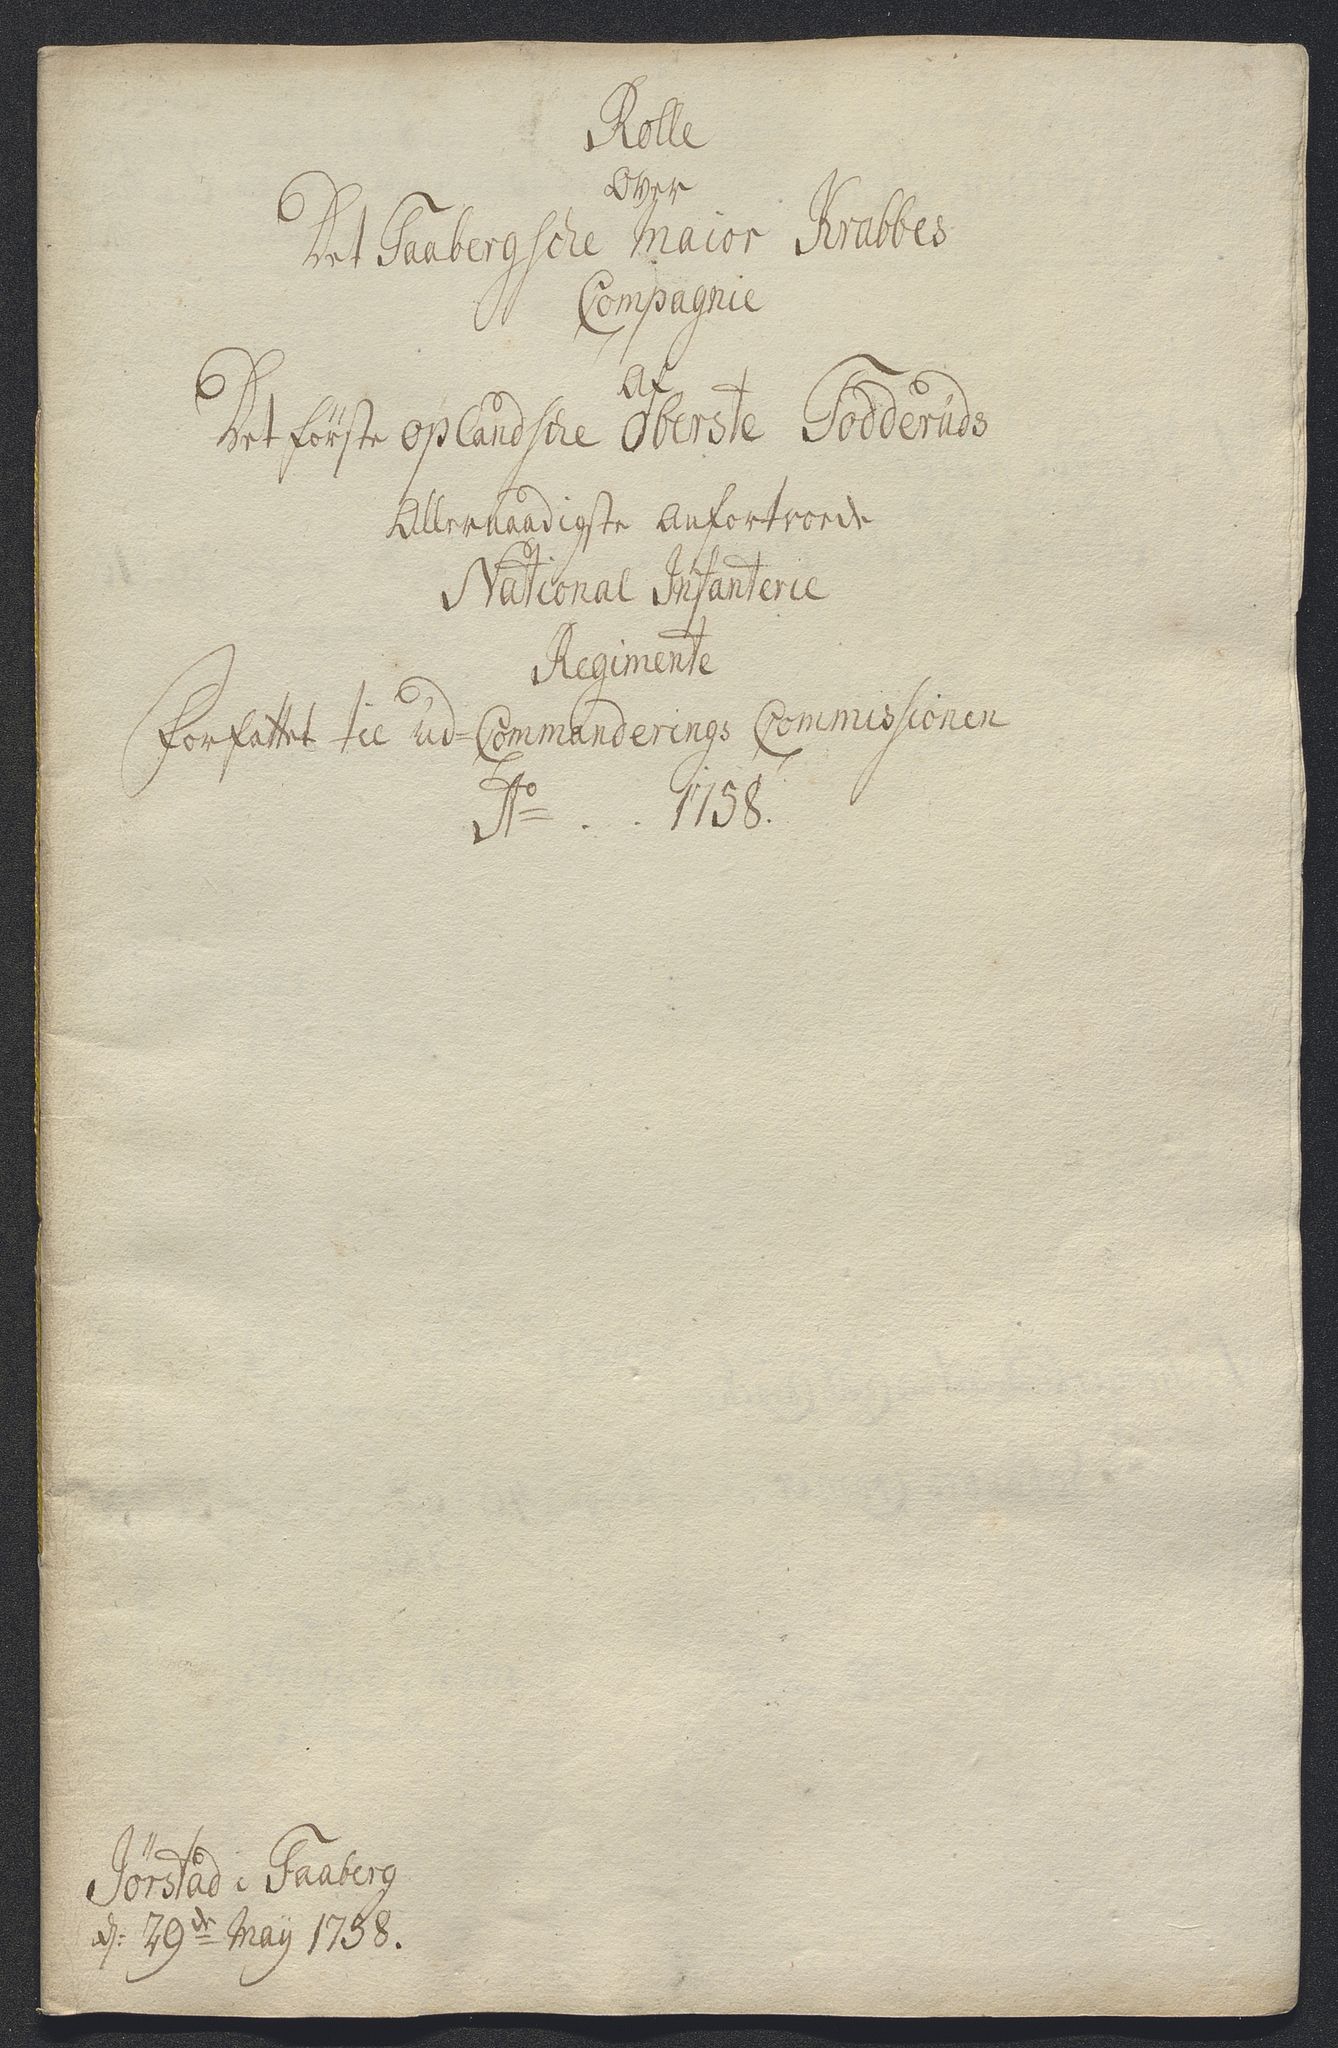 Rolle
Over
Det Faabergsche Maior Krabbes
Compagnie
Af
Det förste oplandsche Oberste Fodderuds
Allernaadigste anfortroede
National Infanterie
Regimente
Forfattet til Ud-Commanderings Commissionen
Ao . . 1758.
Jörstad i Faaberg
d: 29de May 1758.